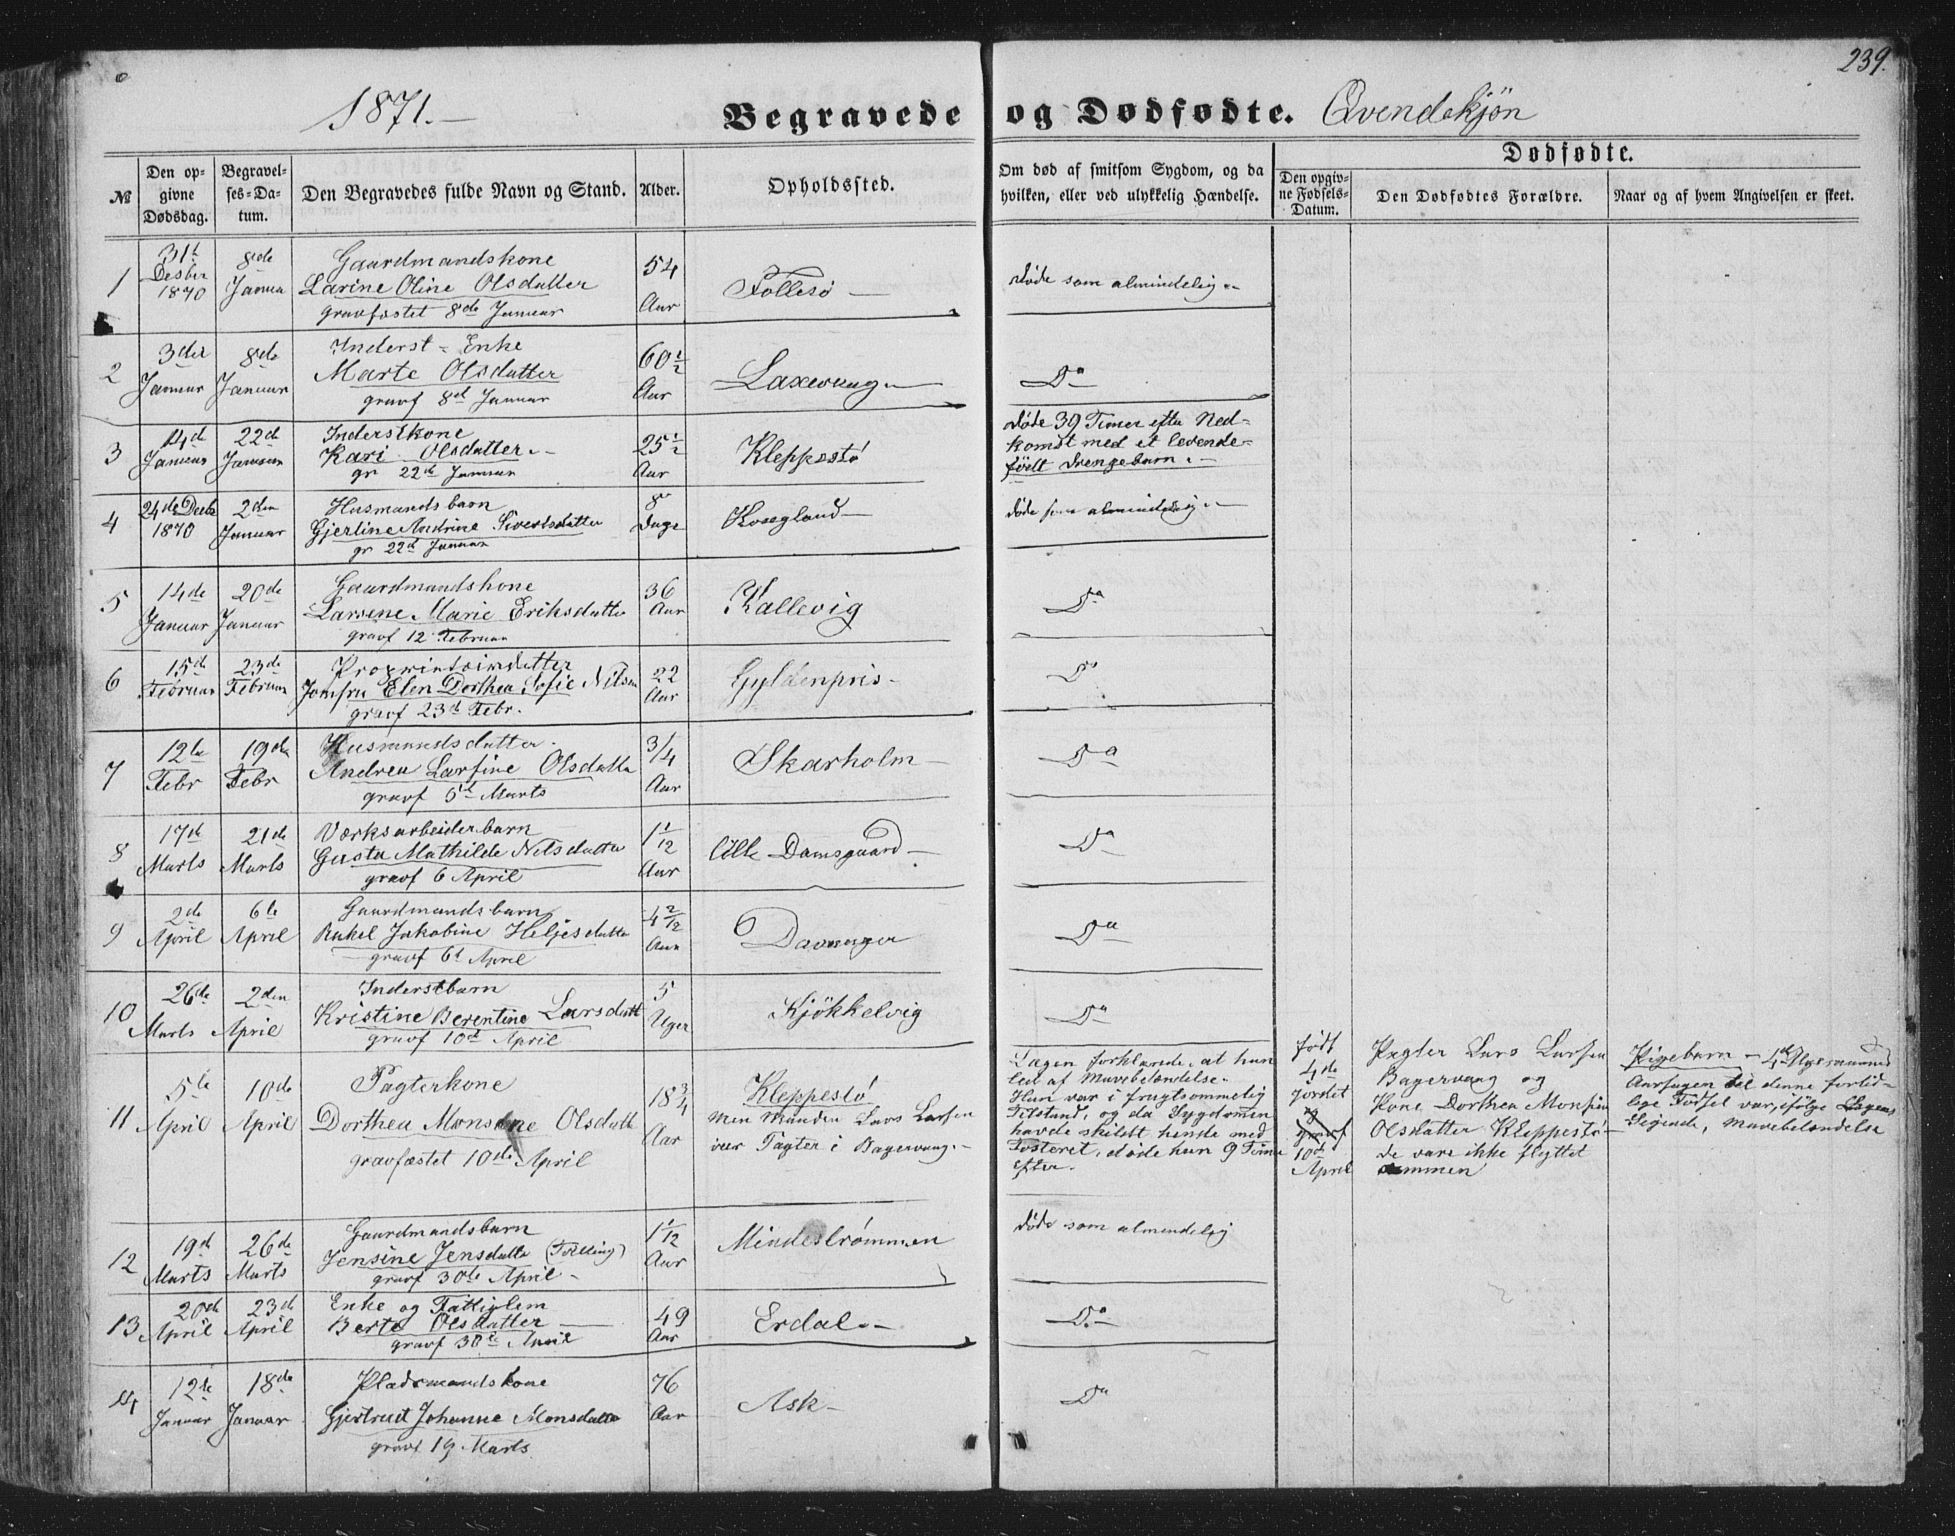 239.
1871.—
Begravede og Dødfødte. Qvendekjön
№
Den opgivne Dødsdag.
Begravelses-Datum.
Den Begravedes fulde Navn og Stand.
Alder.
Opholdssted.
Om død af smitsom Sygdom, og da
hvilken, eller ved ulykkelig Hændelse.
Dødfødte.
Den opgivne Fødsels-Datum.
Den Dødfødtes Forældre.
Naar og af hvem Angivelsen er skeet.
1
31t Desbr 1870
8de Januar
Gaardmandskone
Larine Oline Olsdatter
gravfæstet 8de Januar
54 Aar
Follesö —
döde som almindelig
2
3der Januar
8de Januar
Inderst-Enke
Marte Olsdatter
gravf 8d Januar
60½ Aar
Laxevaag
Do
3
14d Januar
22de Januar
Inderstkone
Kari Olsdatter
gr 22d Januar
25½ Aar
Kleppestø
döde 39 Timer efter Ned-
komst med et levende-
födt Drengebarn
4
24de Decbr 1870
2den Januar
Husmandsbarn
Gjertine Andrine Sivertsdatter
gr 22d Januar
8 Dage
döde som almindelig
5
14de Januar
20de Januar
Gaardmandskone
Larsene Marie Eriksdatter
gravf 12 Februar
36 Aar
Kallevig
Do
6
15d Februar
23de Februar
Proprietairdatter
Jomfru Elen Dorthea Sofie Nilsen
gravf 23d Febr.
22 Aar
Gyldenpris
Do
7
12te Febr
19de Febr
Husmandsdatter
Andrea Larsine Olsdatter
gravf 5d Marts
3/4 Aar
Skarholm
Do
8
17de Marts
21de Marts
Værksarbeiderbarn
Gusta Mathilde Nilsdatter
gravf 6 April
1 1/12 Aar
Lille Damsgaard
Do
9
2de April
6te April
Gaardmandsbarn
Rakel Jakobine Heljesdatter
gravf 6t April
4 2/12 Aar
Davanger
Do
10
26de Marts
2den April
Inderstbarn
Kristine Berentine Larsdatt
gravf 10d April
5 Uger
Kjökkelvig
Do
11
5te April
10de April
Pagterkone
Dorthea Monsine Olsdatt
gravfæstet 10de April
18¾ Aar
Kleppestø
men Manden Lars Larsen
var Pagter i
Lægen forklarede at hun
led af Mavebetændelse.
Hun var i frugtsommelig
Tilstand, og da Sygdomen
havde skildt hende med
Fosteret, döde hun 9 Timer
efter.
födt
4de
jordet
10d
April
Pagter Lars Larsen
og
Kone Dorthea Monsine
Olsdatter Kleppestø
de vare ikke flyttet
sammen
Pigebarn —
Aarsagen til denne fortid-
lige Födsel var, ifölge Lægens
Sigende, Mavebetændelse
12
19d Marts
26de Marts
Gaardmandsbarn
Jensine Jensdatter (Tvilling)
gravf 30te April
1 1/12 Aar
Mindeströmmen
döde som almindelig
13
20de April
23d April
Enke og Fattiglem
Berte Olsdatter
gravf 30te April
49 Aar
Erdal
Do
14
12te Januar
18de Januar
Pladsmandskone
Gjertrud Johanne Monsdatter
gravf 19 Marts
76 Aar
Ask
Do